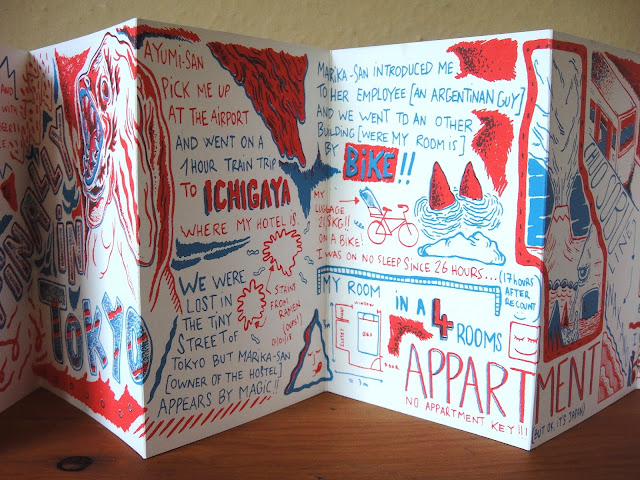 AND
WITH
FINALLY
in
TOKYO
AYUMI-SAN
PICK ME UP
AT THE AIRPORT
AND WENT ON A
1 HOUR TRAIN TRIP
TO ICHIGAYA
WHERE MY HOTEL IS.
WE WERE
LOST IN
THE TINY
STREET OF
TOKYO BUT MARIKA-SAN
[OWNER OF THE HOSTEL]
APPEARS BY MAGIC!!
FROM
RAMEN
(OUPS!)
MARIKA-SAN INTRODUCED ME
TO HER EMPLOYEE [AN ARGENTINAN GUY]
AND WE WENT TO AN OTHER
BUILDING [WERE MY ROOM IS]
BY BIKE!!
MY
LUGGAGE
ON A BIKE!
I WAS ON NO SLEEP SINCE 26 HOURS...
(17 HOURS
AFTER
RECOUNT
MY ROOM IN A 4 ROOMS
BED
DOOR
APPARTMENT
NO APPARTMENT KEY!!!
(BUT OK, IT'S JAPAN)